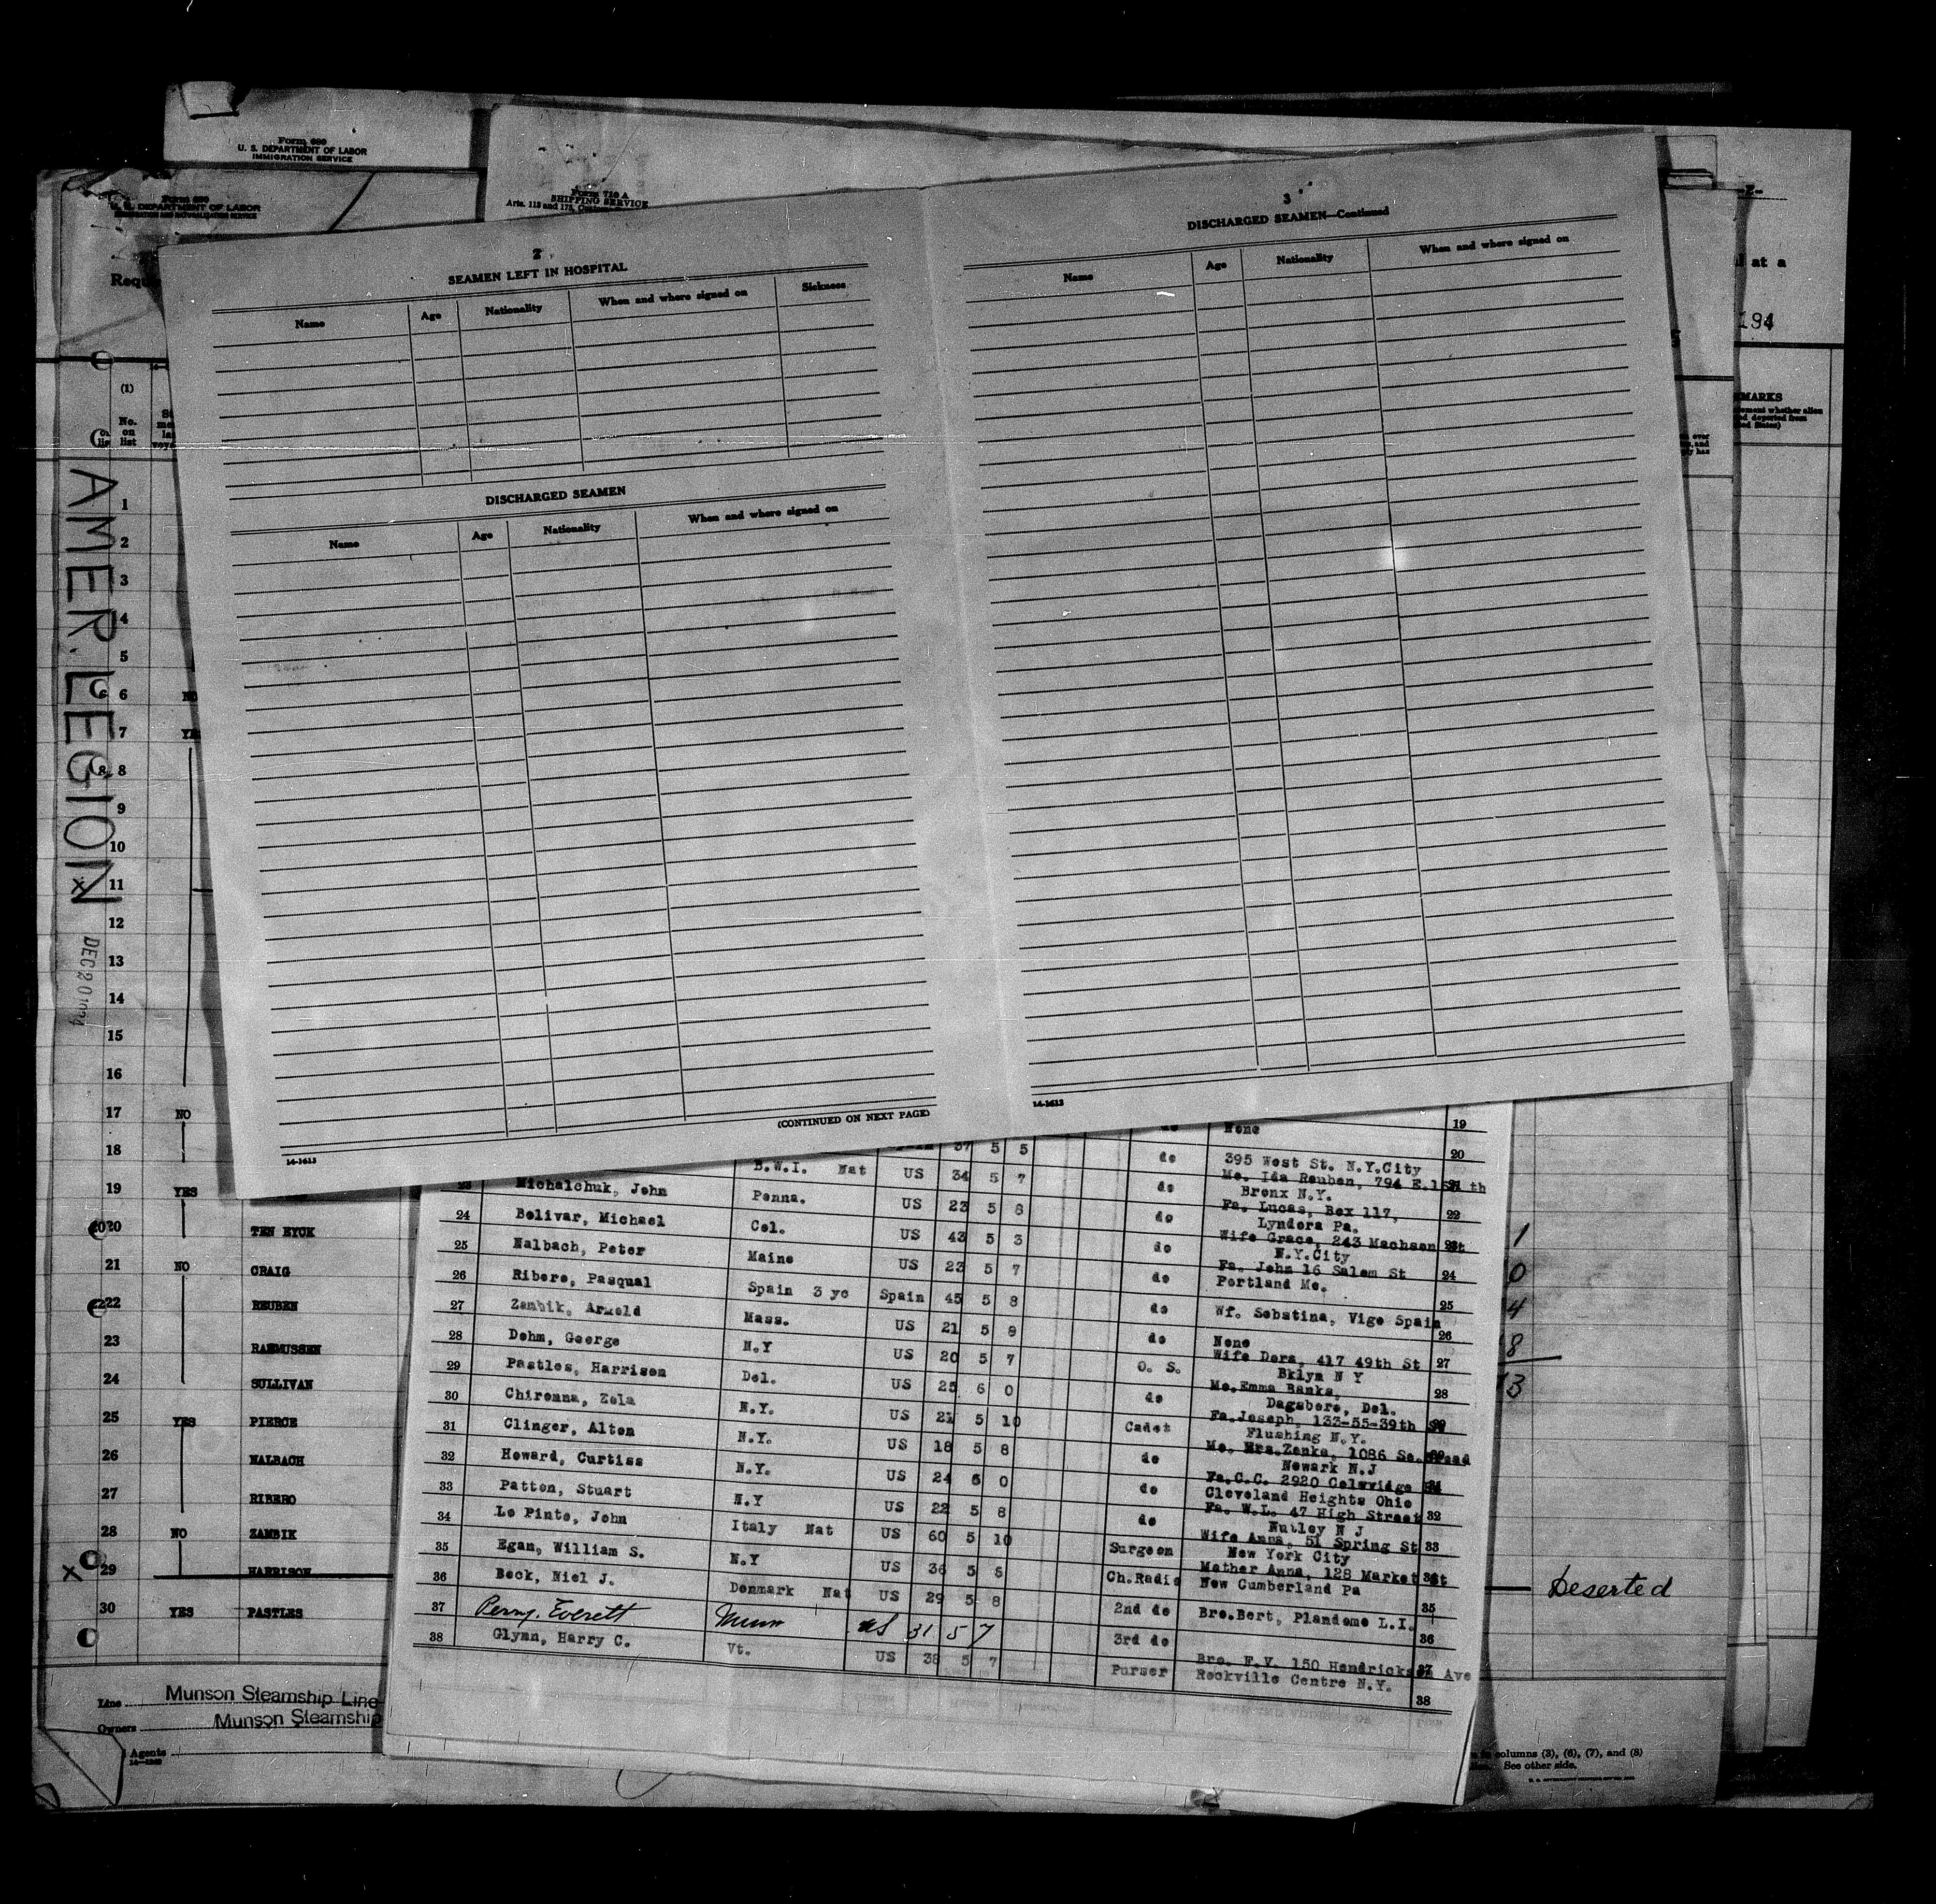 Form 680
U. S. DEPARTMENT OF LABOR
IMMIGRATION SERVICE
Form 680
U. S. DEPARTMENT OF LABOR
Form 710 A
SHIPPING SERVICE
Arts. 118 and 175,
2
SEAMEN LEFT IN HOSPITAL
Name Age Nationality When and where signed on Sickness
DISCHARGED SEAMEN
Name Age Nationality When and where signed on
(CONTINUED ON NEXT PAGE)
14-1613
3
DISCHARGED SEAMEN—Continued
Name Age Nationality When and where signed on
14-1613
at a
194
(1)
No.
on
list
AMER. LEGION
DEC 20
1
2
3
4
5
6 NO
7
8
9
10
x 11
12
13
14
15
16
17 NO
18
19 YES
20 TEN EYCK
21 NO CRAIG
22 REUBEN
23 RASMUSSEN
24 SULLIVAN
25 YES PIERCE
26 NALBACH
27 RIBERO
28 NO ZAMBIK
x 29 HARRISON Deserted
30 YES PASTLES
Line Munson Steamship Line
Owners Munson Steamship
Agents
None 19
37 5 5 do 395 West St. N.Y.City 20
B.W.I. Nat US 34 5 7 do Mo. Ida Reuben, 794 E.
Bronx N.Y.
23 Michalchuk, John Penna. US 23 5 8 do Fa. Lucas, Box 117, 22
Lyndora Pa.
24 Bolivar, Michael Col. US 43 5 3 do Wife Grace, 243
N.Y.City
25 Nalbach, Peter Maine US 23 5 7 do Fa. John 16 Salem St 24
Portland Me.
26 Ribero, Pasqual Spain 3 yc Spain 45 5 8 do Wf. Sebstina, Vigo Spain 25
27 Zambik, Arnold Mass. US 21 5 8 do None 26
28 Dohm, George N.Y US 20 5 7 O. S. Wife Dora, 417 49th St 27
Bklyn N Y
29 Pastles, Harrison Del. US 25 6 0 do Mo.Emma Banks, 28
Dagsboro, Del.
30 Chironna, Zola N.Y. US 21 5 10 Cadet Fa.Joseph, 133-55-39th
Flushing N.Y.
31 Clinger, Alton N.Y. US 18 5 8 do Mo. Mrs.Zenka, 1086 So.
Newark N.J
32 Howard, Curtiss N.Y. US 24 6 0 do Fa.C.C. 2920
Cleveland Heights Ohio
33 Patton, Stuart N.Y US 22 5 8 do Fa. W.L. 47 High Street 32
Nutley N J
34 Lo Pinto, John Italy Nat US 60 5 10 Surgeon Wife Anna, 51 Spring St 33
New York City
35 Egan, William S. N.Y US 36 5 6 Ch.Radio Mother Anna, 128 Market St
New Cumberland Pa
36 Beck, Niel J. Denmark Nat US 29 5 8 2nd do Bro.Bert, Plandome L.I. 35
37 Perry, Everett US 31 5 7 3rd do 36
38 Glynn, Harry C. Vt. US 38 5 7 Purser Bro. F.V. 150 Hendrickson Ave
Rockville Centre N.Y.
38
columns (3), (6), (7), and (8)
See other side.